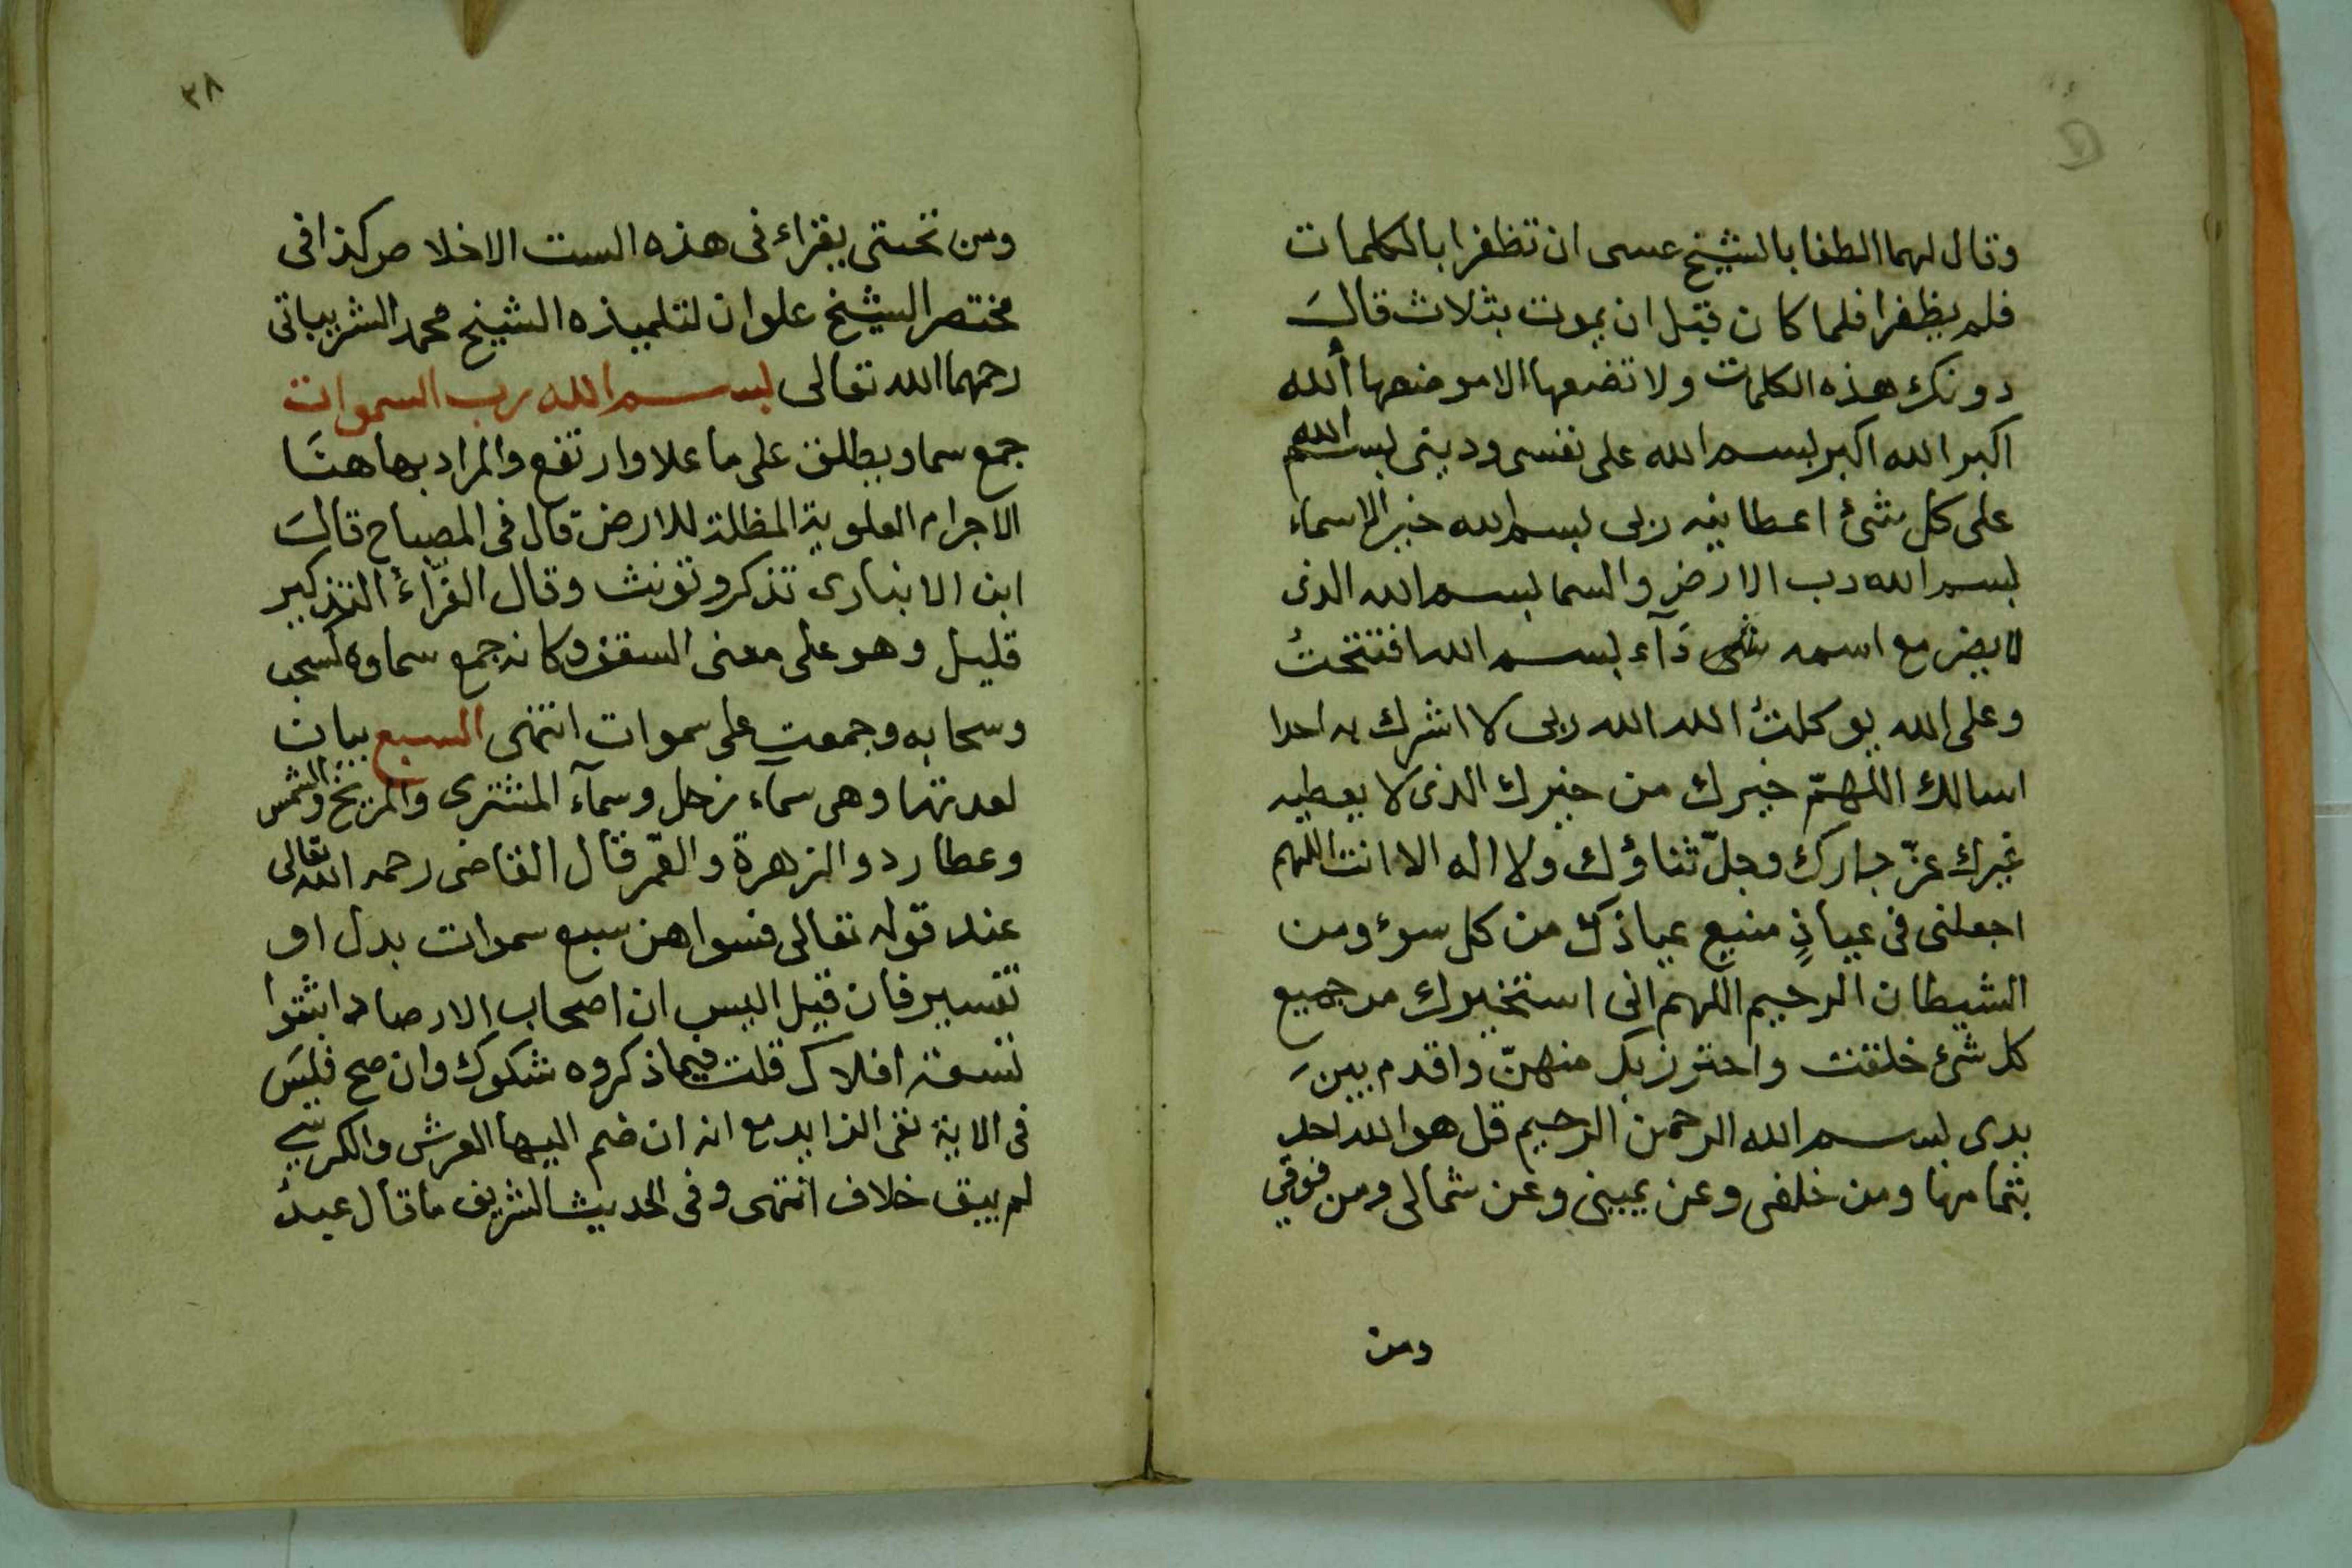 وقال لهما الطفا بالشيخ عسى ان تظفرا بالكلمات
فلم يظفرا فلما كان قبل ان يموت بثلاث قال
دونك هذه الكلمات ولا تضعها الا موضعها الله
اكبر الله اكبر بسم الله على نفسى ودينى بسم الله
على كل شئ اعطانيه ربى بسم الله خير الاسماء
بسم الله رب الارض والسما بسم الله الذى
لا يضر مع اسمه شى دآء بسم الله افتتحت
وعلى الله توكلت الله الله ربى لا اشرك به احدا
اسالك اللهمّ خيرك من خيرك الذى لا يعطيه
غيرك عزّ جارك وجلّ ثناؤك ولا اله الا انت اللهم
اجعلنى فى عياذٍ منيع عياذك من كل سوء ومن
الشيطان الرجيم اللهم انى استخيرك من جميع
كل شئ خلقت واحترز بك منهنّ واقدم بين
يدى بسم الله الرحمن الرحيم قل هو الله احد
بتمامها ومن خلفى وعن يمينى وعن شمالى ومن فوقي
ومن
٣٨
ومن تحتى يقراء فى هذه الست الاخلاص كذا فى
مختصر الشيخ علوان لتلميذه الشيخ محمد الشرباتى
رحمهما الله تعالى بسم الله رب السموات
جمع سما ويطلق على ما علا وارتفع والمراد بها هنا
الاجرام العلوية المظلة للارض قال فى المصباح قال
ابن الانبارى تذكر وتونث وقال الفرّاء التذكير
قليل وهو على معنى السقف وكانه جمع سماوه كسحب
وسحابه وجمعت على سموات انتهى السبع بيان
لعدتها وهى سماء زحل وسمآء المشترى والمريخ والشمس
وعطارد والزهرة والقمر قال القاضى رحمه الله تعالى
عند قوله تعالى فسواهن سبع سموات بدل او
تفسير فان قيل اليس ان اصحاب الارصاد اثبتوا
تسعة افلاك قلت فيما ذكروه شكوك وان صح فليس
فى الاية نفى الزايد مع انه ان ضم اليها العرش والكرسي
لم يبق خلاف انتهى وفى الحديث الشريف ما قال عبد